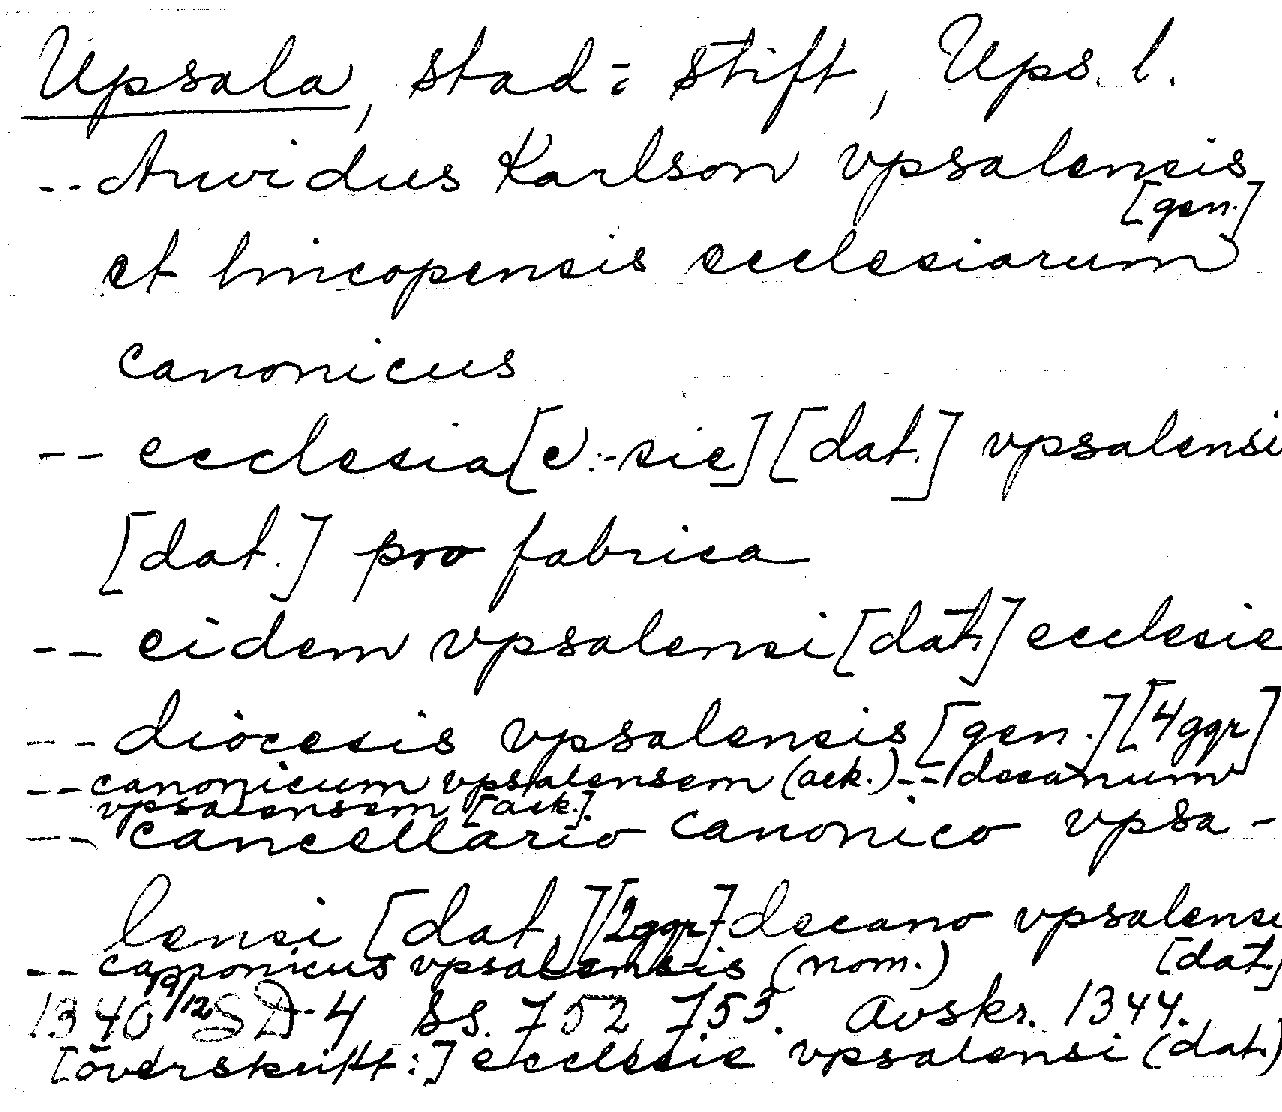 Upsala, stad o. stift, Ups. l.
-- Arvidus Karlson vpsalensis
[gen.]
et lincopensis ecclesiarum
canonicus
-- ecclesia [ɔ:-sie] [dat.] vpsalensi
[dat.] pro fabrica
-- eidem vpsalensi [dat.] ecclesie
-- diocesis vpsalensis [gen.] [4ggr]
-- canonicum vpsalensem (ack.) -- decanum
vpsalensem [ack.]
-- cancellario canonico vpsa-
lensi [dat.] [2ggr] decano vpsalensi
-- canonicus vpsalensis (nom.) [dat.]
1340 19/12 SD 4 ss. 752 753. Avskr. 1344.
[överskrift:] ecclesie vpsalensi (dat.)